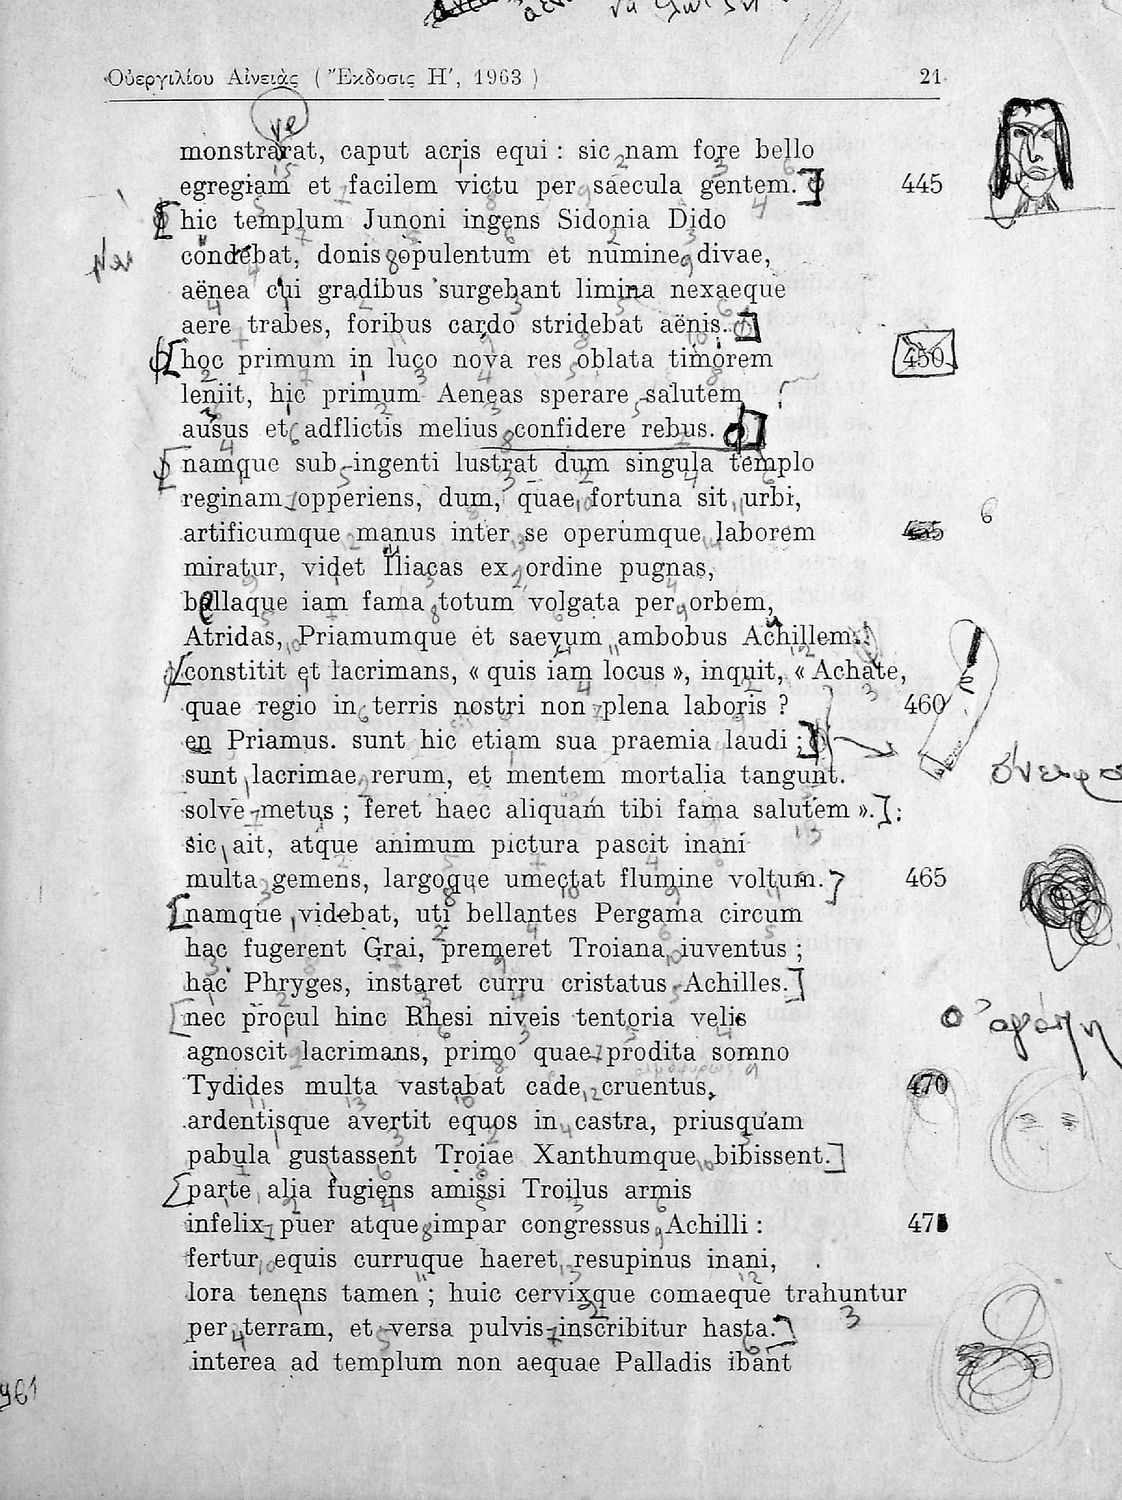 Οὐεργιλίου Αἰνειὰς ( Ἔκδοσις Η΄, 1963 ) 21
ve
monstrarat, caput acris equi : sic nam fore bello
egregiam et facilem victu per saecula gentem. 445
hic templum Junoni ingens Sidonia Dido
condebat, donis opulentum et numine divae,
aënea cui gradibus surgebant limina nexaeque
aere trabes, foribus cardo stridebat aënis.
hoc primum in luco nova res oblata timorem 450
leniit, hic primum Aeneas sperare salutem
ausus et adflictis melius confidere rebus.
namque sub ingenti lustrat dum singula templo
reginam opperiens, dum, quae fortuna sit urbi,
artificumque manus inter se operumque laborem 455
miratur, videt Iliacas ex ordine pugnas,
bellaque iam fama totum volgata per orbem,
Atridas, Priamumque et saevum ambobus Achillem.
constitit et lacrimans, « quis iam locus », inquit, « Achate,
quae regio in terris nostri non plena laboris ? 460
en Priamus. sunt hic etiam sua praemia laudi ;
sunt lacrimae rerum, et mentem mortalia tangunt.
solve metus ; feret haec aliquam tibi fama salutem ».
sic ait, atque animum pictura pascit inani
multa gemens, largoque umectat flumine voltum. 465
namque videbat, uti bellantes Pergama circum
hac fugerent Grai, premeret Troiana iuventus ;
hac Phryges, instaret curru cristatus Achilles.
nec procul hinc Rhesi niveis tentoria velis
agnoscit lacrimans, primo quae prodita somno
Tydides multa vastabat cade cruentus, 470
ardentisque avertit equos in castra, priusquam
pabula gustassent Troiae Xanthumque bibissent.
parte alia fugiens amissi Troilus armis
infelix puer atque impar congressus Achilli : 475
fertur equis curruque haeret resupinus inani,
lora tenens tamen ; huic cervixque comaeque trahuntur
per terram, et versa pulvis inscribitur hasta.
interea ad templum non aequae Palladis ibant